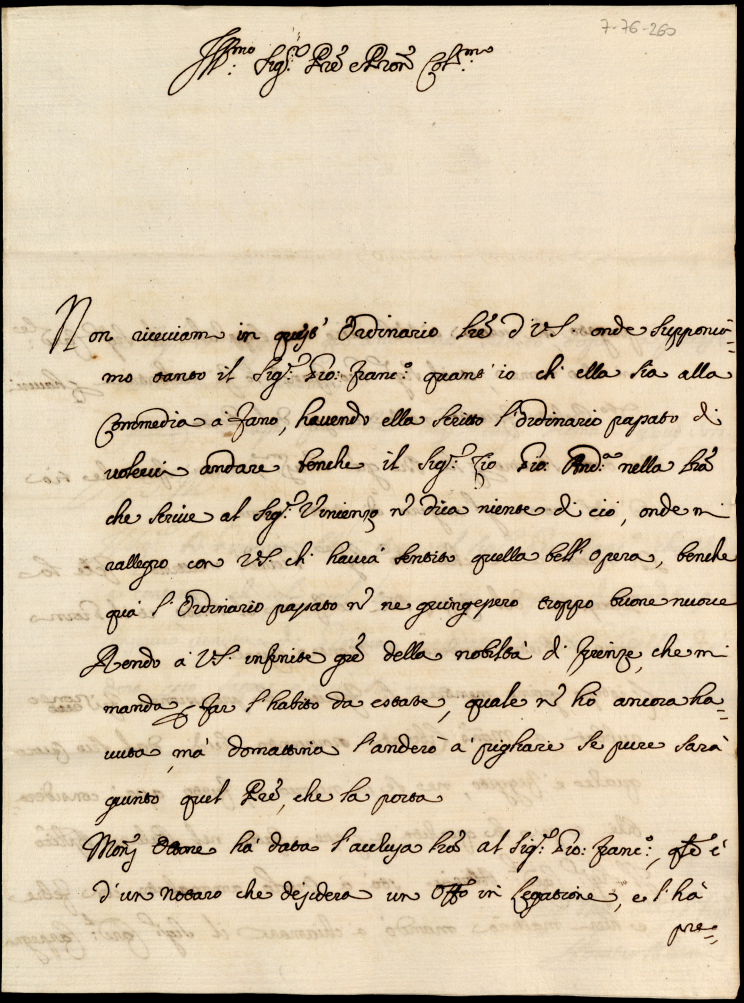 7-76-260
Ill:mo Sig:r Prē e Prōn Col:mo
Non riceviam in quest' Ordinario lrē d'VS. onde supponia=
mo tanto il Sig:r Gio: Franc:o quant' io ch' ella sia alla
Commedia à Fano, havendo ella scritto l'Ordinario passato di
volerci andare benche il Sig:r Zio Gio: And:a nella lrā
che scrive al Sig:r Vincenzo nō dica niente di ciò, onde mi
rallegro con VS. ch' havrà sentito quella bell' opera, benche
quà l'Ordinario passato nō ne giungessero troppo buone nuove
Rendo à VS. infinite grē della nobiltà di Firenze, che mi
manda p far l'habito da estate, quale nō hò ancora ha=
vuta, mà domattina l'anderò à pigliare se pure sarà
giunto quel Prē, che la porta
Mons:r Ottone hà data l'acclusa lrā al Sig:r Gio: Franc:o, qstē è
d'un Notaro che desidera un Offo in Legatione, e l'hà
pre=